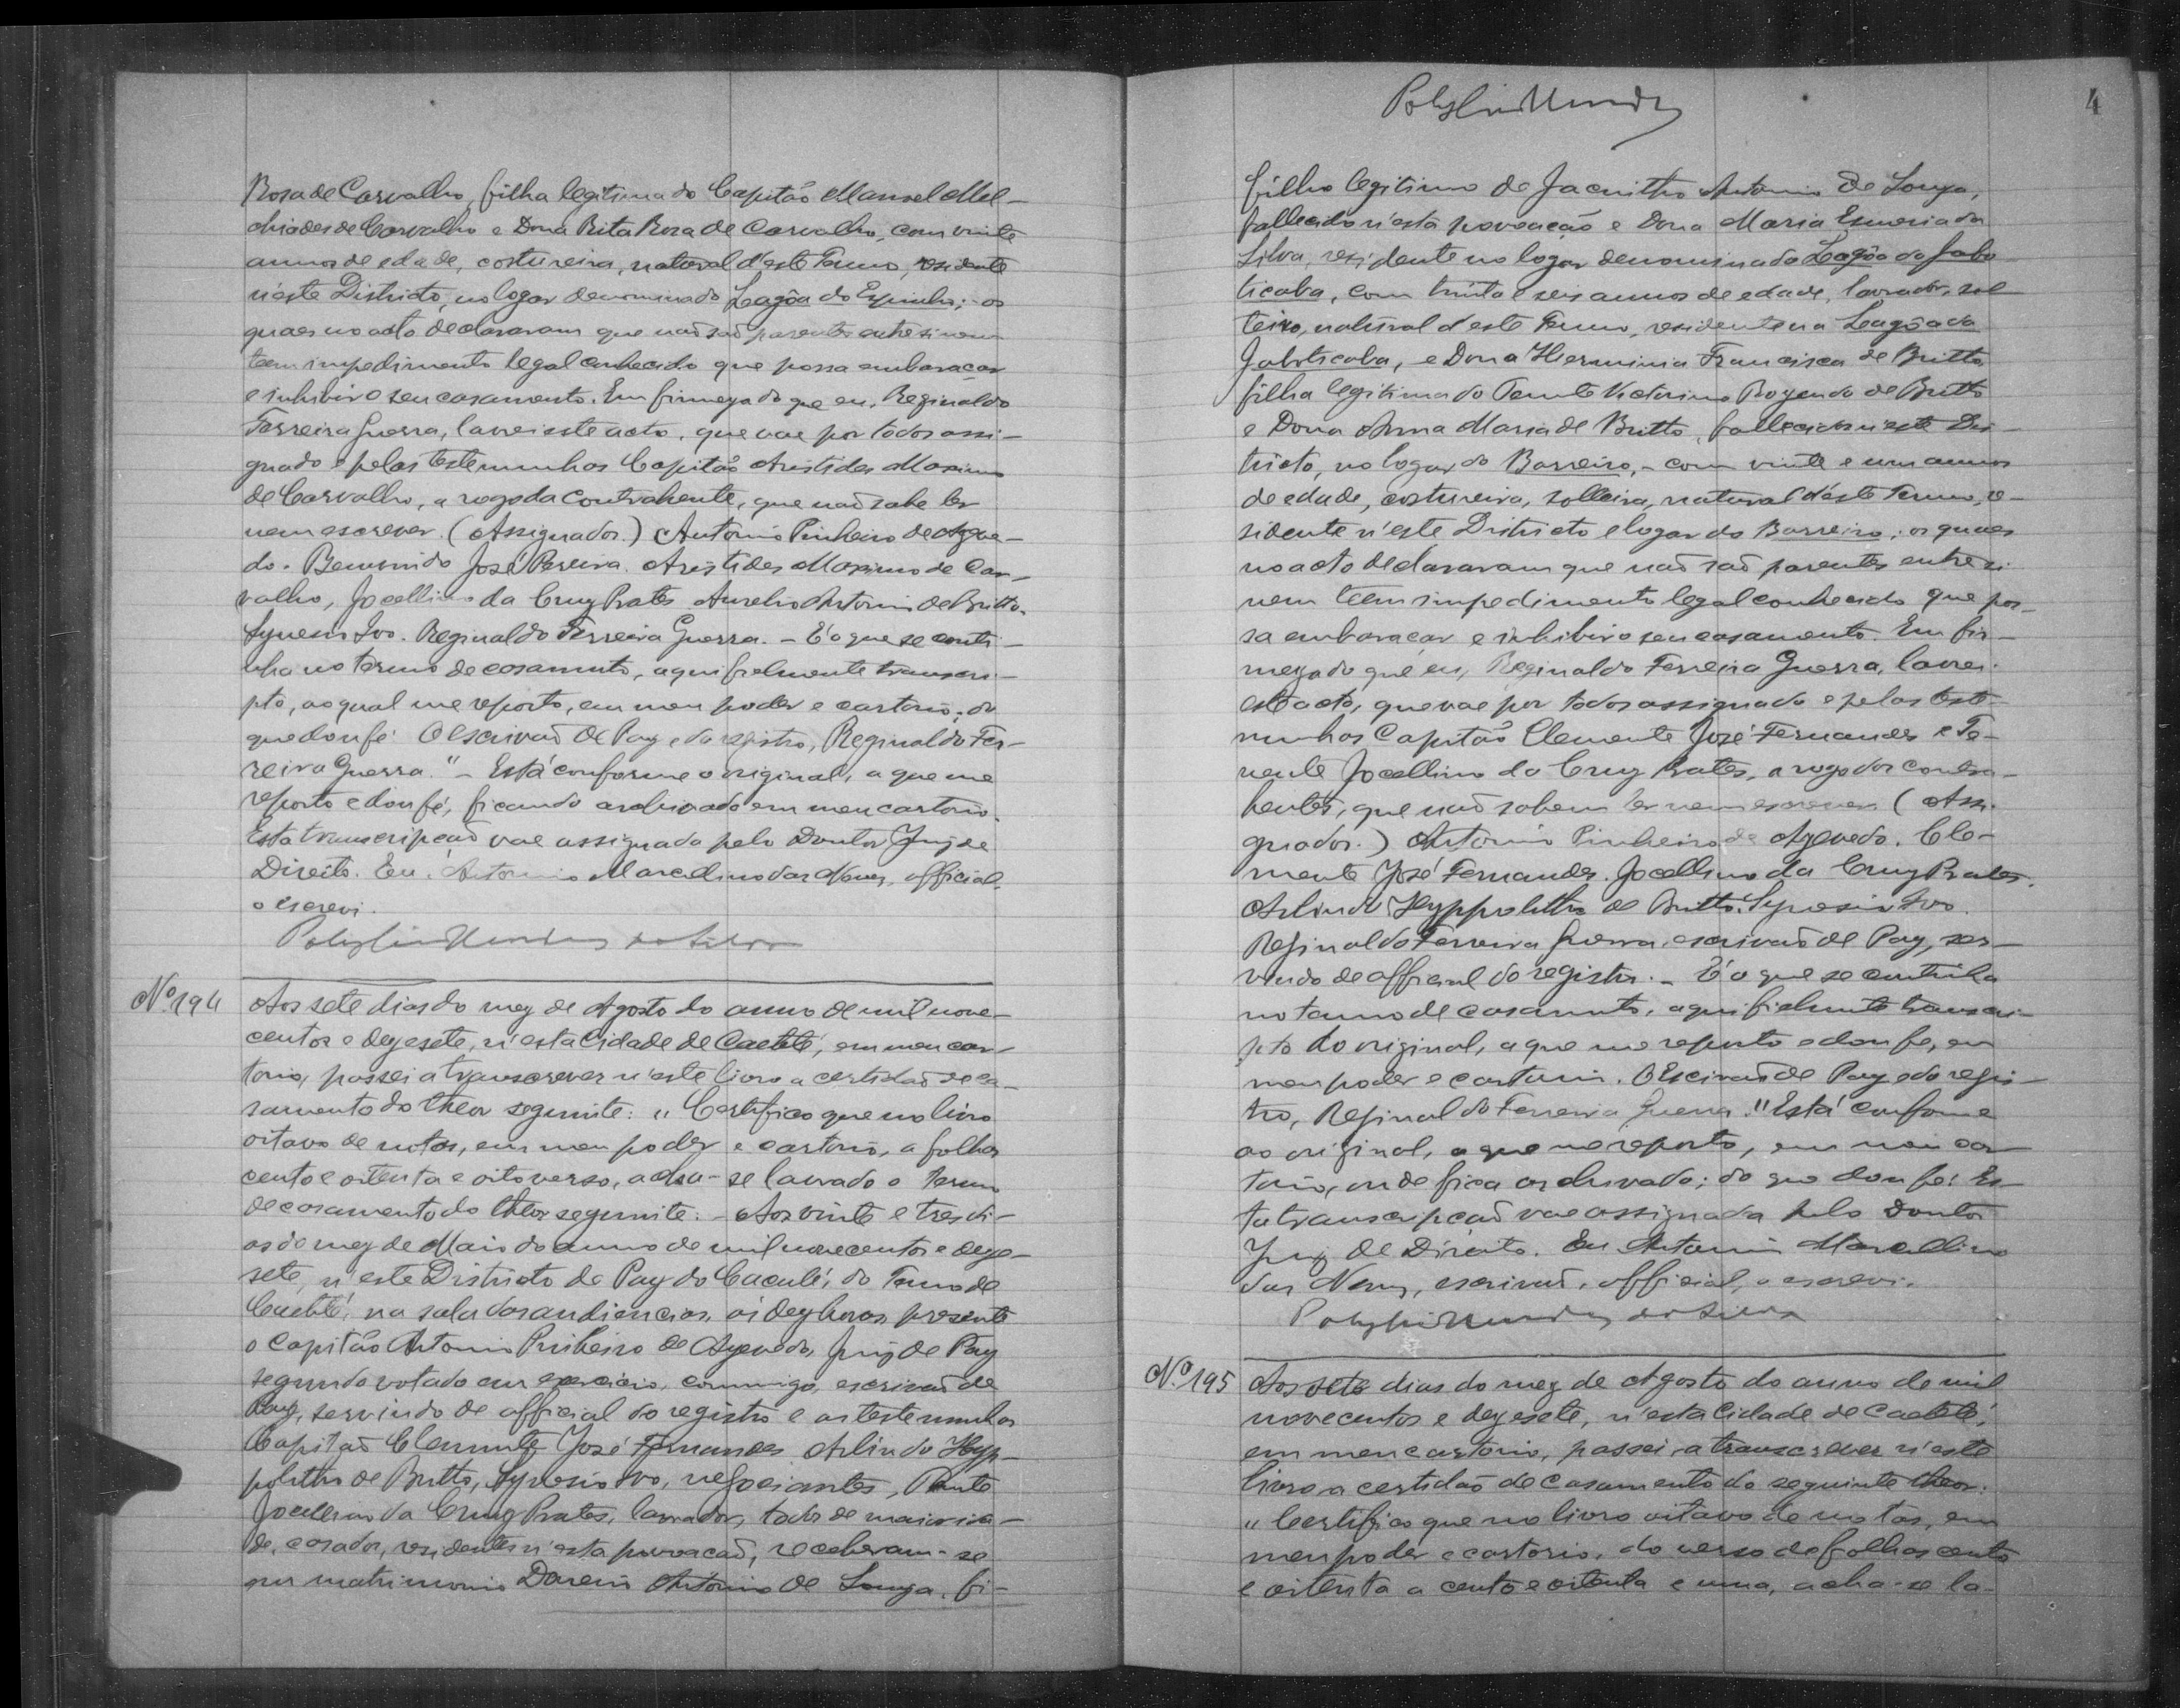 Rosa de Carvalho, filha legitima do Capitão Manoel Mel-
chiades de Carvalho e Dona Rita Rosa de Carvalho, com vinte
annos de edade, costureira, natural d'este Termo, residente
n'este Districto, no logar denominado Lagôa do Espinho; os
quaes no acto declararam que não são parentes entre si nem
teem impedimento legal conhecido que possa embaraçar
e inhibir o seu casamento. Em firmeza do que eu, Reginaldo
Ferreira Guerra, lavrei este acto, que vae por todos assi-
gnado e pelas testemunhas Capitão Aristides Maximo
de Carvalho, a rogo da contrahente, que não sabe ler
nem escrever. (Assignados.) Antonio Pinheiro de Azeve-
do. Benvindo José Pereira. Aristides Maximo de Car-
valho, Jocellino da Cruz Prates. Aurelio Antonio de Britto.
Synesio Ivo. Reginaldo Ferreira Guerra. - É o que se conti-
nha no termo de casamento, aqui fielmente transcri-
pto, ao qual me reporto, em meu poder e cartorio; do
que dou fé. O escrivão de Paz e do registro, Reginaldo Fer-
reira Guerra." - Está conforme o original, a que me
reporto e dou fé, ficando archivado em meu cartorio.
Esta transcripção vae assignada pelo Doutor Juiz de
Direito. Eu, Antonio Marcellino das Neves, official,
o escrevi.
Nº 194
Aos sete dias do mez de Agosto do anno de mil nove-
centos e dezesete, n'esta Cidade de Caeteté, em meu car-
torio, passei a transcrever n'este livro a certidão de ca-
samento do theor seguinte: "Certifico que no livro
oitavo de notas, em meu poder e cartorio, a folhas
cento e oitenta e oito verso, acha-se lavrado o termo
de casamento do theor seguinte: - Aos vinte e tres di-
as do mez de Maio do anno de mil novecentos e deze-
sete, n'este Districto de Paz do Caculé, do Termo de
Caeteté, na sala das audiencias, ás dez horas, presente
o Capitão Antonio Pinheiro de Azevedo, Juiz de Paz
segundo votado em exercicio, commigo, escrivão de
Paz, servindo de official do registro e as testemunhas
Capitão Clemente José Fernandes, Arlindo Hyp-
politho de Britto, Synesio Ivo, negociantes, Tenente
Jocellino da Cruz Prates, lavrador, todos de maiorida-
de, casados, residentes n'esta povoação, receberam-se
em matrimonio Dario Antonio de Souza, fi-
4
filho legitimo de Jacintho Antonio de Souza,
fallecido n'esta povoação e Dona Maria Esmeria da
Silva, residente no logar denominado Lagôa da Jabo
ticaba, com trinta e seis annos de edade, lavrador, sol
teiro, natural d'este Termo, residente na Lagôa da
Jaboticaba, e Dona Herminia Francisca de Britto
filha legitima do Tenente Victorino Rozendo de Britto
e Dona Anna Maria de Britto, fallecidos n'este Dis-
tricto, no logar do Barreiro, - com vinte e um annos
de edade, costureira, solteira, natural d'este Termo, re-
sidente n'este Districto e logar do Barreiro; os quaes
no acto declararam que não são parentes entre si
nem teem impedimento legal conhecido que pos-
sa embaraçar e inhibir o seu casamento. Em fir-
meza do que eu, Reginaldo Ferreira Guerra, lavrei
este acto, que vae por todos assignado e pelas teste-
munhas Capitão Clemente José Fernandes e Te-
nente Jocellino da Cruz Prates, a rogo dos contra-
hentes, que não sabem ler nem escrever (Assi-
gnados.) Antonio Pinheiro de Azevedo. Cle-
mente José Fernandes. Jocellino da Cruz Prates.
Arlindo Hyppolitho de Britto. Synesio Ivo.
Reginaldo Ferreira Guerra, escrivão de Paz, ser-
vindo de official do registro. - É o que se continha
no termo de casamento, aqui fielmente transcri-
pto do original, a que me reporto e dou fé, em
meu poder e cartorio. O Escrivão de Paz e do regis-
tro, Reginaldo Ferreira Guerra." Está conforme
ao original, a que me reporto, em meu car
torio, onde fica archivado; do que dou fé. Es-
ta transcripção vae assignada pelo Doutor
Juiz de Direito. Eu Antonio Marcellino
das Neves, escrivão, official, o escrevi.
Nº 195
Aos sete dias do mez de Agosto do anno de mil
novecentos e dezesete, n'esta Cidade de Caeteté,
em meu cartorio, passei a transcrever n'este
livro a certidão de casamento do seguinte theor:
"Certifico que no livro oitavo de notas, em
meu poder e cartorio, do verso de folhas cento
e oitenta a cento e oitenta e uma, acha-se la-